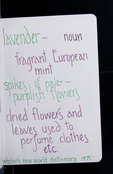 lavender - noun
fragrant European
mint
spikes of pale-
purplish flowers
dried flowers and
leaves used to
perfume clothes
etc
webster's new world dictionary